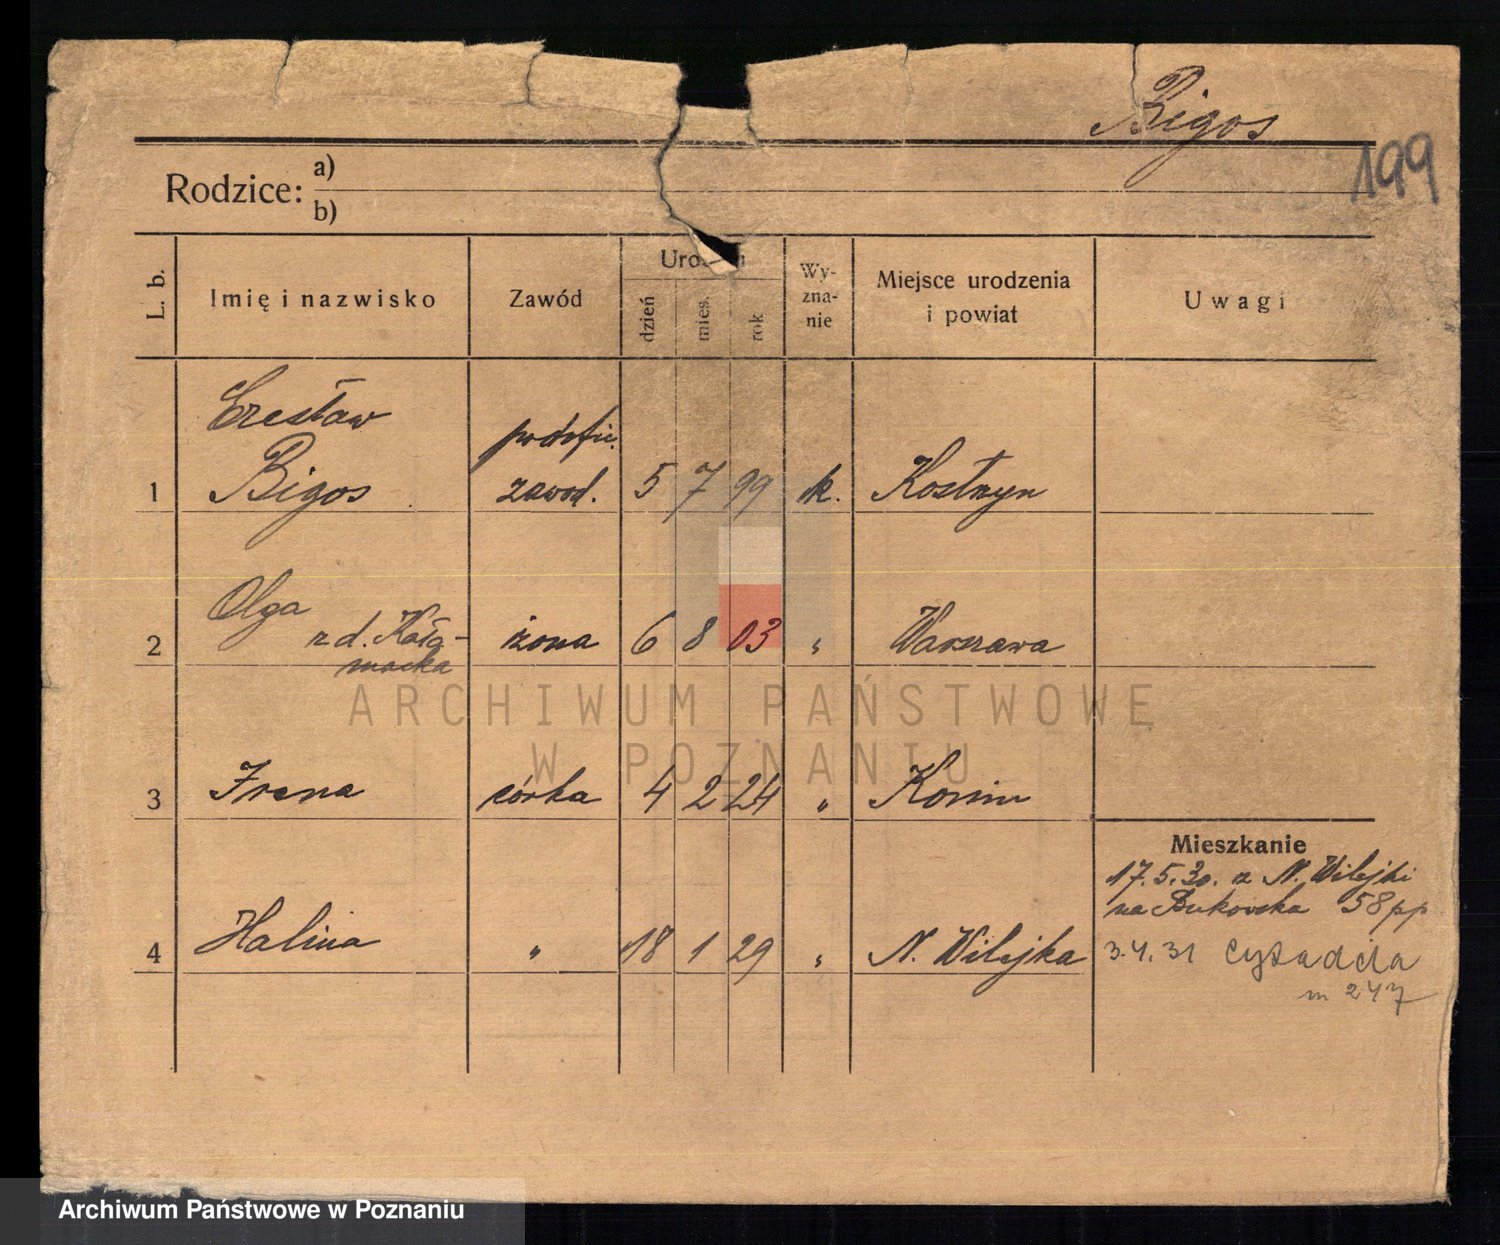 Bigos
199
Rodzice: a)
b)
L. b.
Imię i nazwisko
Zawód
dzień
mies.
rok
Wy-
zna-
nie
Miejsce urodzenia
i powiat
Uwagi
1
Czesław
Bigos
podofic.
zawod.
5 7 99
rk.
Kostrzyn
2
Olga
zd. Kała-
macka
żona
6 8 03
"
Warszawa
ARCHIWUM PAŃSTWOWE
W POZNANIU
3
Irena
córka
4 2 24
"
Konin
4
Halina
"
18 1 29
"
N. Wilejka
Mieszkanie
17.5.30. z N. Wilejki
na Bukowska 58 pp
3.4.31 Cytadela
m 247
Archiwum Państwowe w Poznaniu